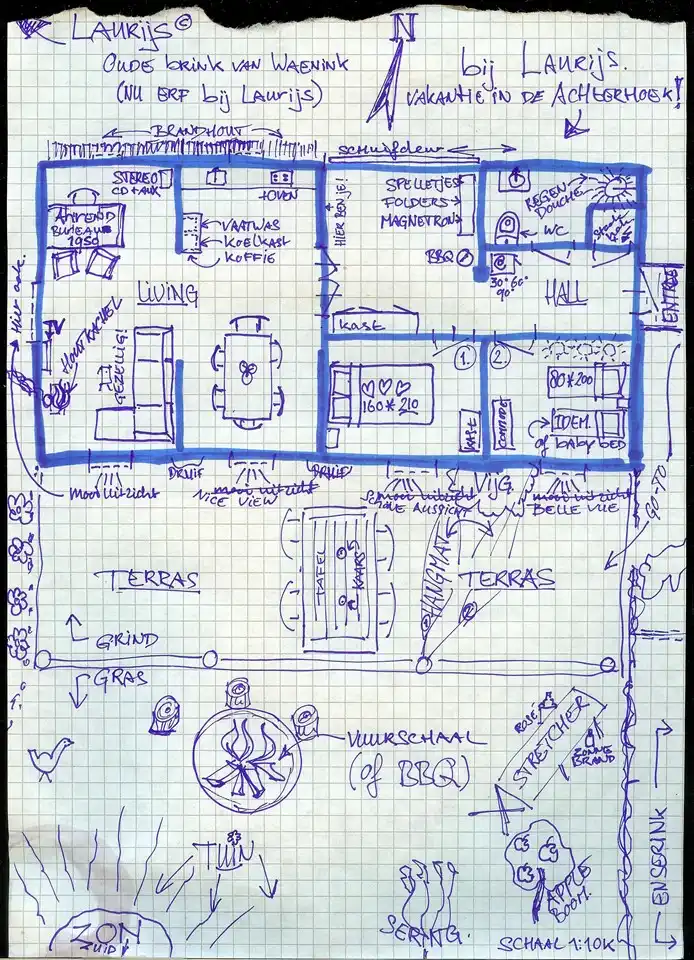 LAURIJS©
OUDE BRINK VAN WAENINK
(NU ERF bij LAURIJS)
N
bij LAURIJS.
VAKANTIE IN DE ACHTERHOEK!
BRANDHOUT
SCHUIFDEUR
STEREO
CD+AUX
+OVEN
AHREND
BUREAU
1950
VAATWAS
KOELKAST
KOFFIE
HIER BEN JE!
SPELLETJES
FOLDERS
MAGNETRON
BBQ
REGEN-
DOUCHE
WC
30° 60°
90°
HALL
ENTREE
LIVING
HIER OOK.
HOUTKACHEL
TV
GEZELLIG!
KAST
1.
2.
160*210
80*200
IDEM.
of babybED
COMMODE
mooi uitzicht
DRUIF
mooi uitzicht
NICE VIEW
DRUIF
mooi uitzicht
AUSSICHT
VIJG.
mooi uitzicht
BELLE VUE
TERRAS
TAFEL
KAARS
HANGMAT
1
2
TERRAS
GRIND
GRAS
VUURSCHAAL
(of BBQ)
ROSÉ
STRETCHER
ZONNE
BRAND
TUIN
ZON
ZUID
SERING.
APPLE
BOOM.
ENSERINK
SCHAAL 1:10K